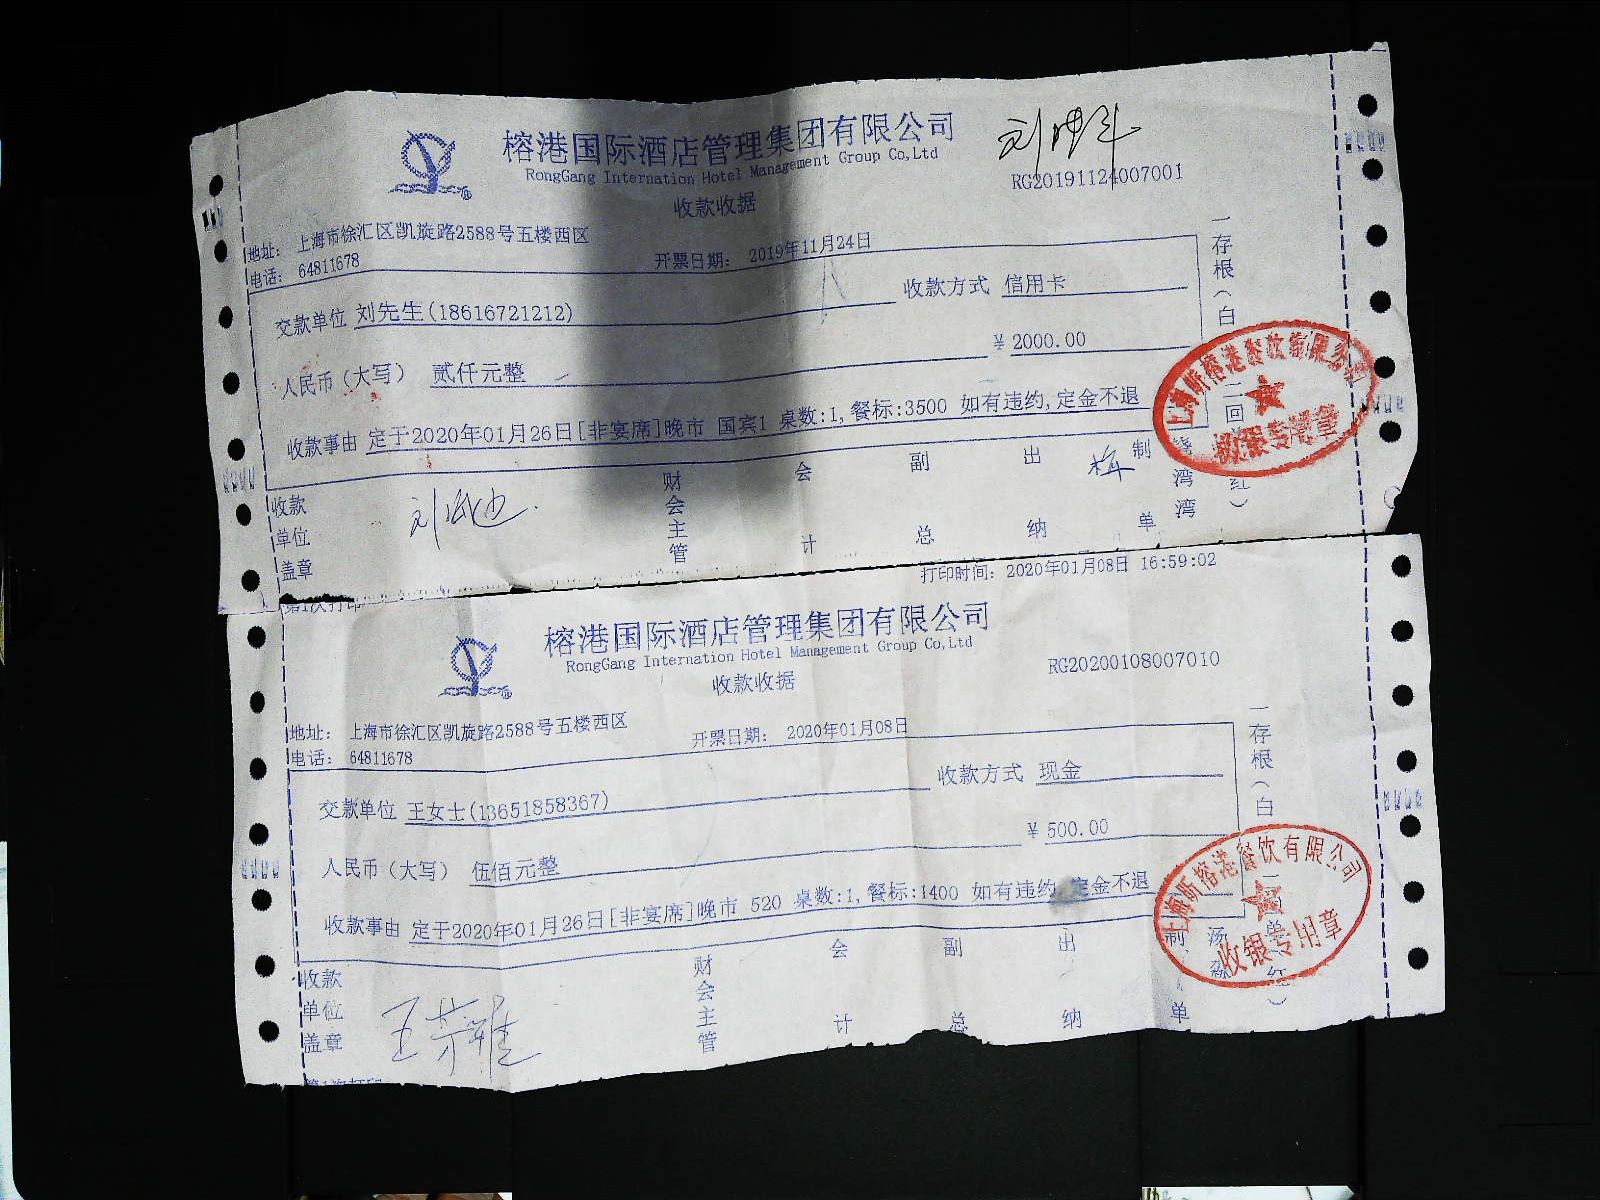 榕港国际酒店管理集团有限公司
RongGang Internation Hotel Management Group Co,Ltd
RG20191124007001
收款收据
地址： 上海市徐汇区凯旋路2588号五楼西区
电话： 64811678
开票日期： 2019年11月24日
交款单位 刘先生(18616721212)
收款方式 信用卡
人民币（大写） 贰仟元整
¥ 2000.00
收款事由 定于2020年01月26日[非宴席]晚市 国宾1 桌数:1,餐标:3500 如有违约,定金不退
收款单位盖章
财会主管
会计
副总
出纳
制单
梅
湾湾
一存根（白
二回
红）
上海昕榕港餐饮有限公司
收银专用章
打印时间： 2020年01月08日 16:59:02
榕港国际酒店管理集团有限公司
RongGang Internation Hotel Management Group Co,Ltd
RG20200108007010
收款收据
地址： 上海市徐汇区凯旋路2588号五楼西区
电话： 64811678
开票日期： 2020年01月08日
交款单位 王女士(13651858367)
收款方式 现金
人民币（大写） 伍佰元整
¥ 500.00
收款事由 定于2020年01月26日[非宴席]晚市 520 桌数:1,餐标:1400 如有违约 定金不退
收款单位盖章
财会主管
会计
副总
出纳
制单
一存根（白
红）
上海昕榕港餐饮有限公司
收银专用章